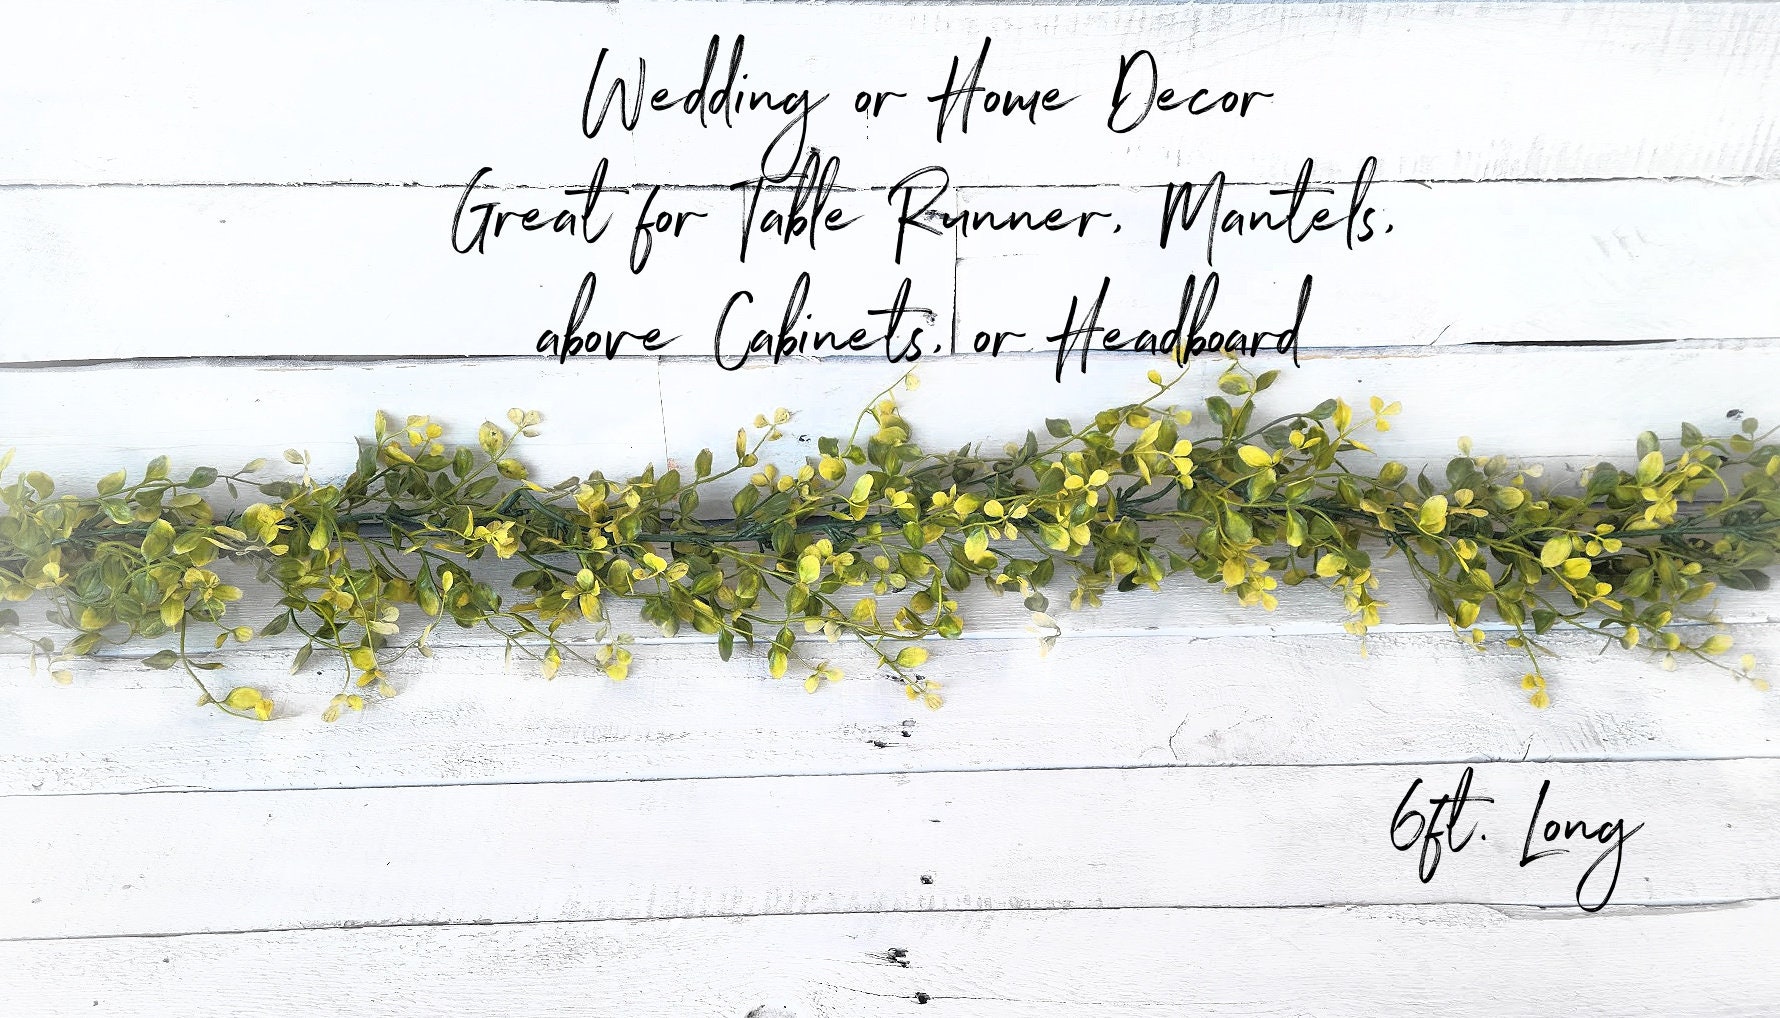 Wedding or Home Decor
Great for Table Runner, Mantels,
above Cabinets, or Headboard
6ft. Long